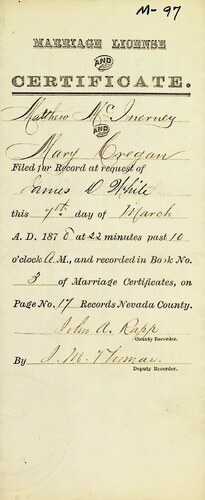 M-97
MARRIAGE LICENSE
AND
CERTIFICATE.
Matthew McInerney
AND
Mary Cregan
Filed for Record at request of
James D White
this 7th day of March
A. D. 1878 at 22 minutes past 10
o'clock A.M., and recorded in Book No.
3 of Marriage Certificates, on
Page No. 17 Records Nevada County.
John A. Rapp
County Recorder.
By J. M. Thomas
Deputy Recorder.